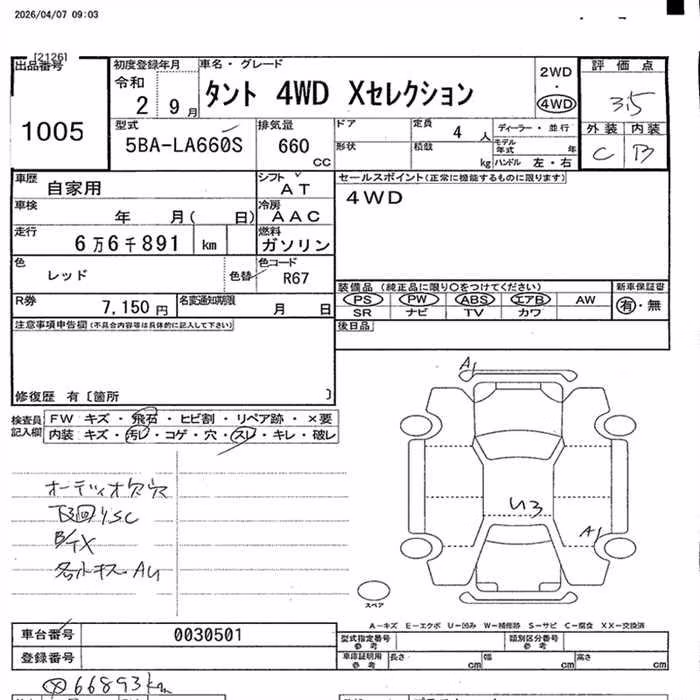 2026/04/07 09:03
[2126]
出品番号
1005
初度登録年月
令和
2 9月
車名・グレード
タント 4WD Xセレクション
2WD
・
4WD
評価点
3.5
外装 内装
C B
型式
5BA-LA660S
排気量
660
cc
ドア
形状
定員
4人
積載
kg
ディーラー・並行
モデル年式 年
ハンドル 左・右
車歴
自家用
シフト
AT
車検
年 月( 日)
冷房
AAC
走行
6万6千891 km
燃料
ガソリン
色
レッド
色替
色コード
R67
R券
7,150円
名変通知期限
月 日
セールスポイント(正常に機能するものに限ります)
4WD
装備品 (純正品に限り○をつけてください)
PS PW ABS エアB AW
SR ナビ TV カワ
新車保証書
有・無
後日品
注意事項申告欄(不具合内容等は具体的に記入して下さい)
修復歴 有〔箇所 〕
検査員記入欄
FW キズ・飛石・ヒビ割・リペア跡・×要
内装 キズ・汚レ・コゲ・穴・スレ・キレ・破レ
オーディオ欠穴
下回りSC
A1
U3
A1
スペア
A-キズ E-エクボ U-凹み W-補修跡 S-サビ C-腐食 XX-交換済
車台番号
0030501
登録番号
型式指定番号
参考
類別区分番号
参考
車庫証明用
参考
長さ cm
幅 cm
高さ cm
66893km